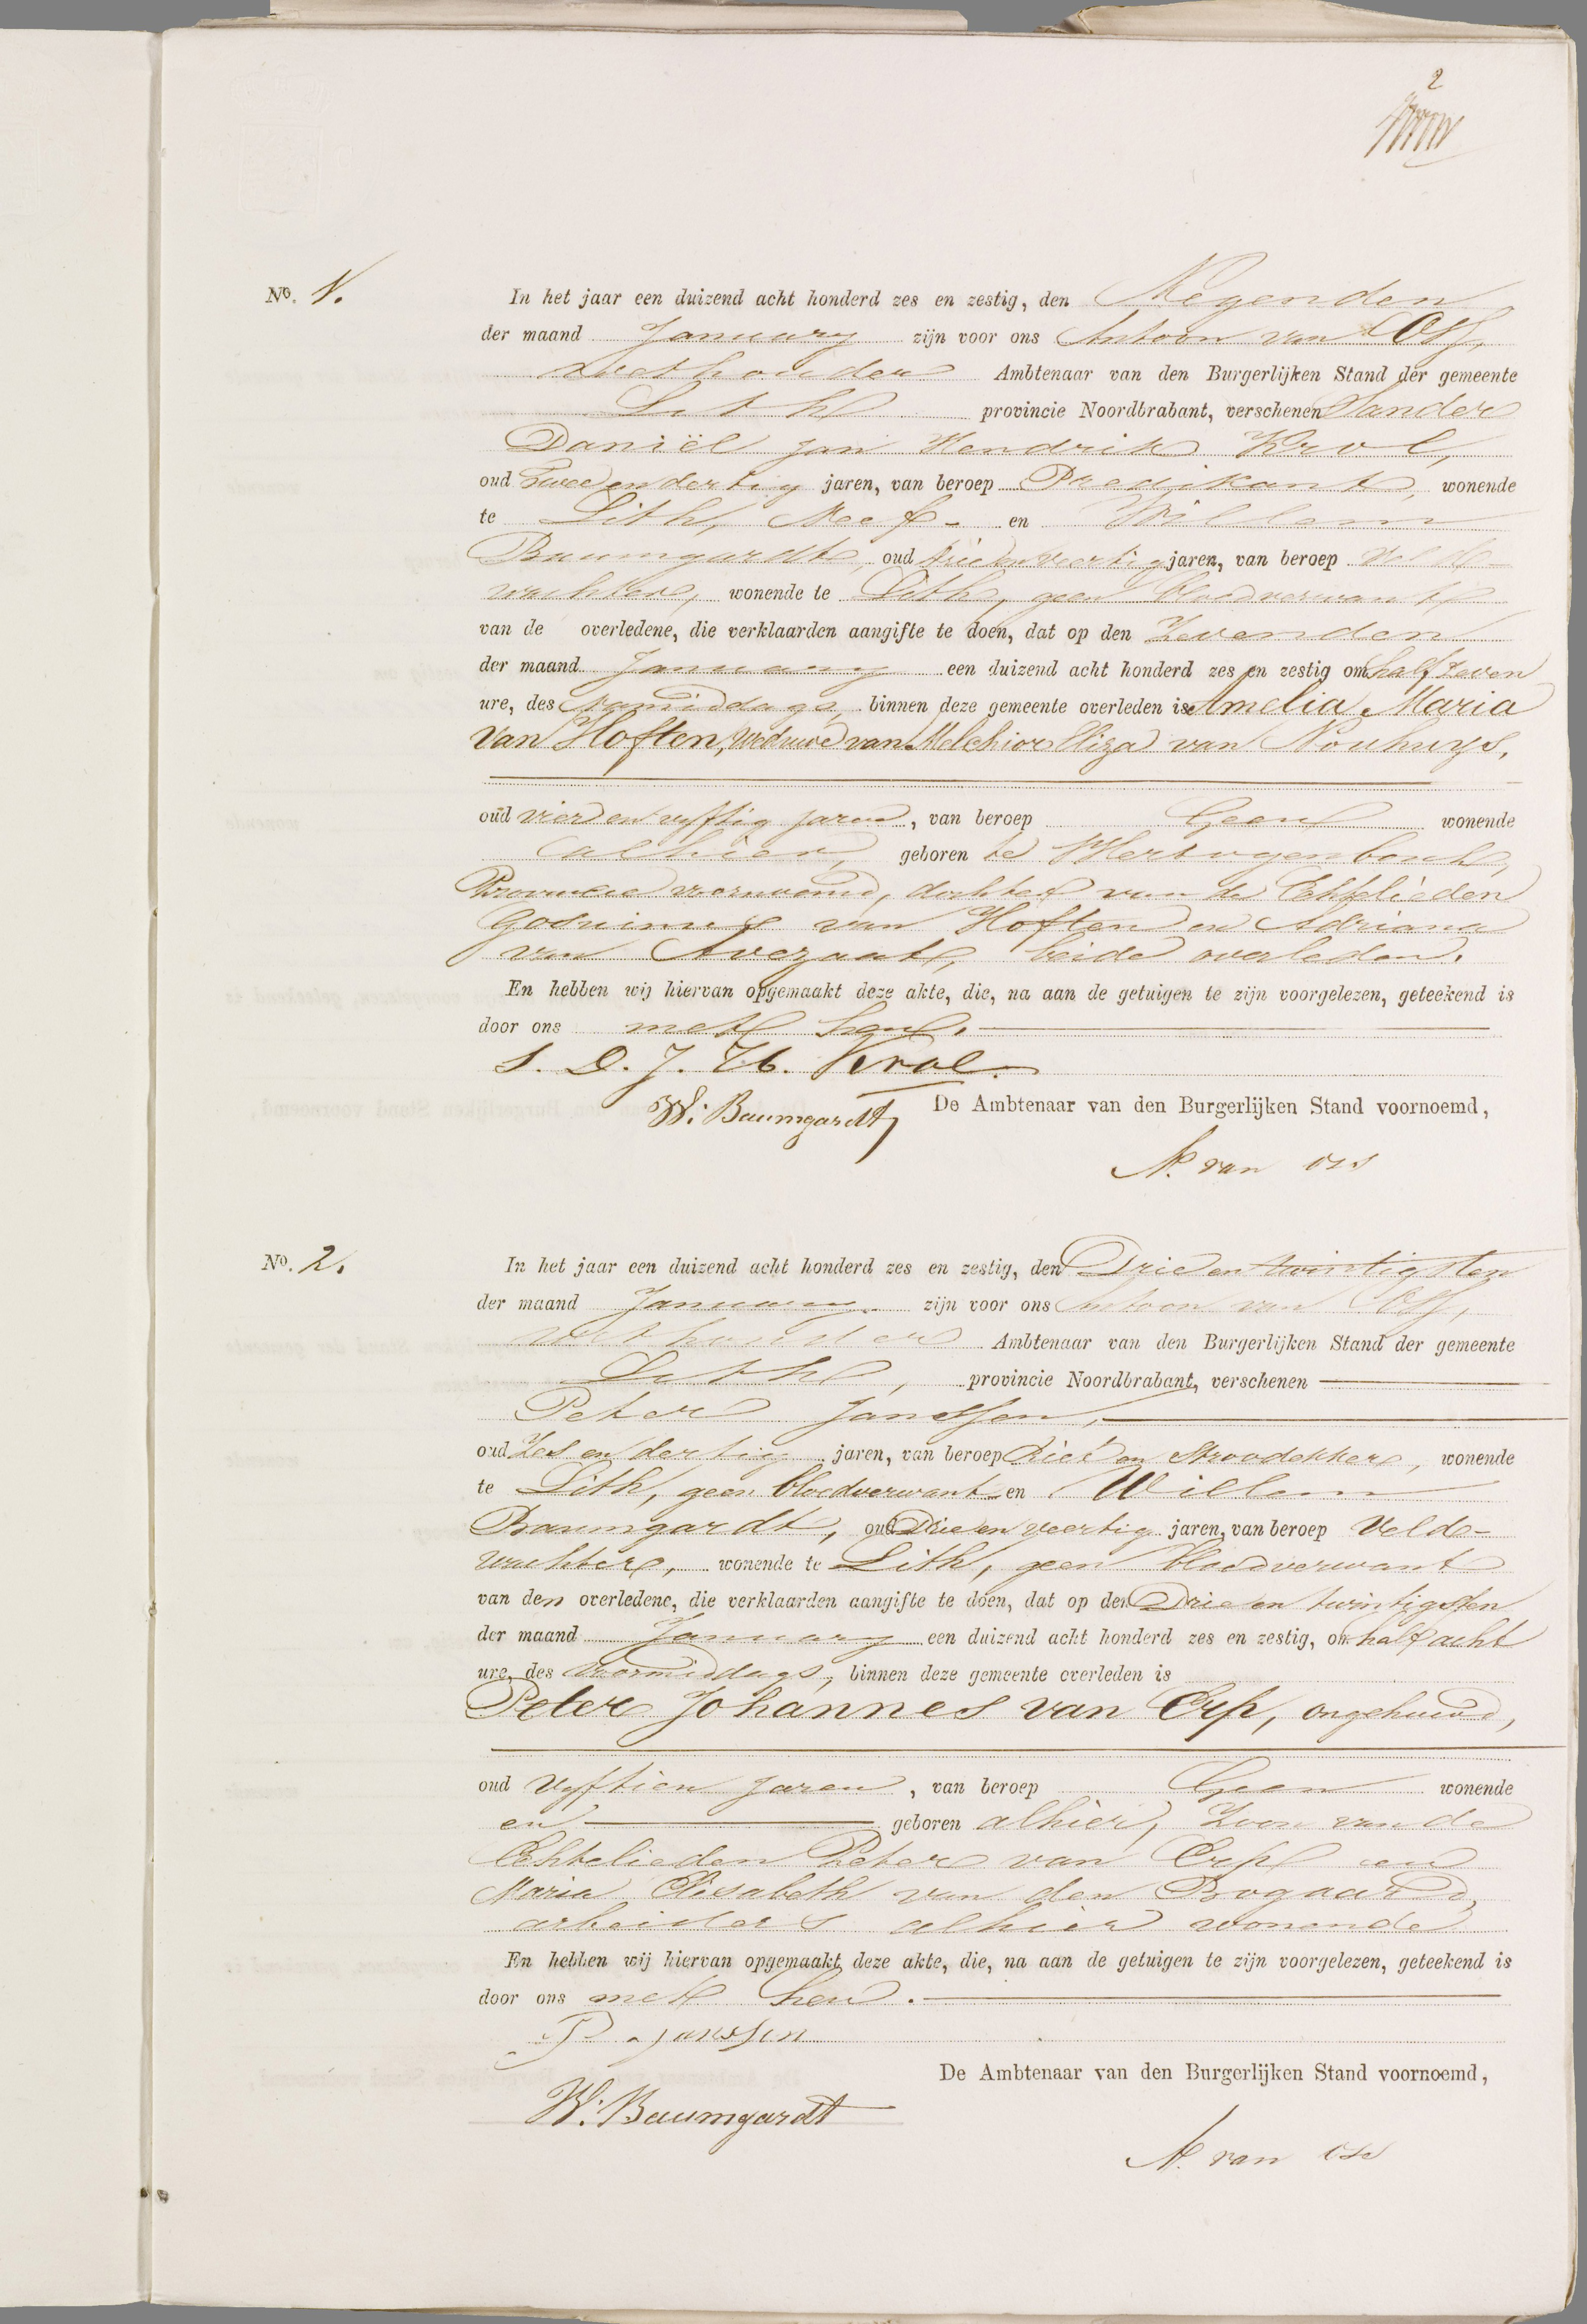 2
No. 1.
In het jaar een duizend acht honderd zes en zestig, den Negenden
der maand January zijn voor ons Antoon van Oss,
wethouder Ambtenaar van den Burgerlijken Stand der gemeente
Lith provincie Noordbrabant, verschenen Sander
Daniël Jan Hendrik Krol,
oud Twee en dertig jaren, van beroep Predikant, wonende
te Lith, Neef - en Willem
Baumgardt, oud drie en veertig jaren, van beroep Velde-
wachter, wonende te Lith, geen bloedverwant
van de overledene, die verklaarden aangifte te doen, dat op den Zevenden
der maand January een duizend acht honderd zes en zestig om half zeven
ure, des namiddags, binnen deze gemeente overleden is Amelia Maria
van Hoften, Weduwe van Melchior Eliza van Nouhuys,
oud vier en vyftig jaren, van beroep Geen wonende
alhier, geboren te 'sHertogenbosch,
Provincie voornoemd, dochter van de Echtelieden
Gosuinus van Hoften en Adriana
van Avezaat, beide overleden.
En hebben wij hiervan opgemaakt deze akte, die, na aan de getuigen te zijn voorgelezen, geteekend is
door ons met hen.
S. D. J. H. Krol.
W. Baumgardt
De Ambtenaar van den Burgerlijken Stand voornoemd,
A. van Oss
No. 2.
In het jaar een duizend acht honderd zes en zestig, den Drie en twintigsten
der maand January zijn voor ons Antoon van Oss,
wethouder Ambtenaar van den Burgerlijken Stand der gemeente
Lith, provincie Noordbrabant, verschenen
Peter Janssen,
oud Zes en dertig jaren, van beroep Riet en Stroodekker, wonende
te Lith, geen bloedverwant en Willem
Baumgardt, oud Drie en veertig jaren, van beroep Velde-
wachter, wonende te Lith, geen bloedverwant
van den overledene, die verklaarden aangifte te doen, dat op den Drie en twintigsten
der maand January een duizend acht honderd zes en zestig, om half acht
ure, des voormiddags, binnen deze gemeente overleden is
Peter Johannes van Erp, ongehuwd,
oud vyftien jaren, van beroep Geen wonende
en geboren alhier, Zoon van de
Echtelieden Peter van Erp en
Maria Elisabeth van den Bogaard,
arbeiders alhier wonende
En hebben wij hiervan opgemaakt deze akte, die, na aan de getuigen te zijn voorgelezen, geteekend is
door ons met hen.
P. Janssen
De Ambtenaar van den Burgerlijken Stand voornoemd,
W. Baumgardt
A. van Oss